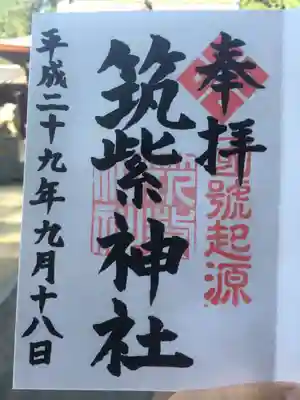 奉拝
國號起源
筑紫神社
平成二十九年九月十八日